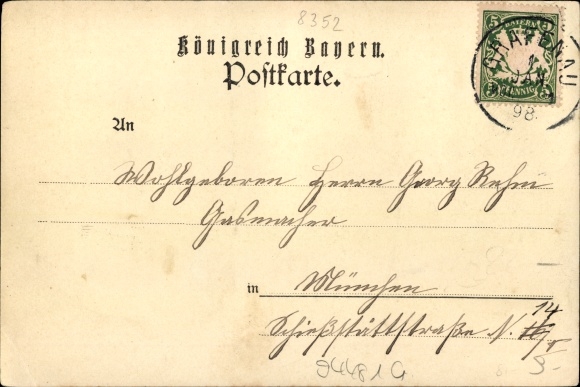 8352
Königreich Bayern.
Postkarte.
5 BAYERN 5
PFENNIG
GRAFENAU
1 JAN
98.
An
Wohlgeboren Herrn Georg Rehm
Gasmacher
in München
14
Schießstättstraße N.
94481 G